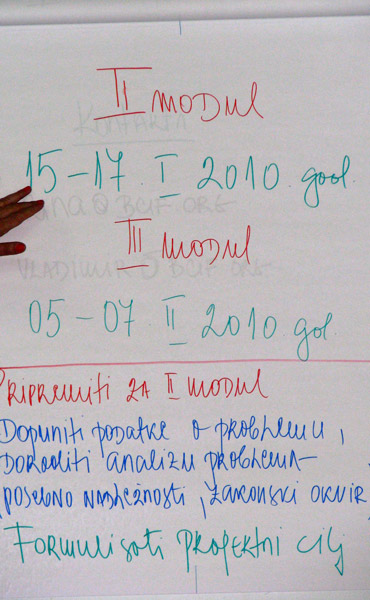 II MODUL
KONTAKTI
15-17. I 2010. god.
@BCIF.ORG
III MODUL
VLADIMIR@BCIF.ORG
05-07. II 2010. god.
PRIPREMITI ZA II MODUL
DOPUNITI PODATKE O PROBLEMU,
DORADITI ANALIZU PROBLEMA-
POSEBNO NADLEŽNOSTI, ZAKONSKI OKVIR
FORMULISATI PROJEKTNI CILJ